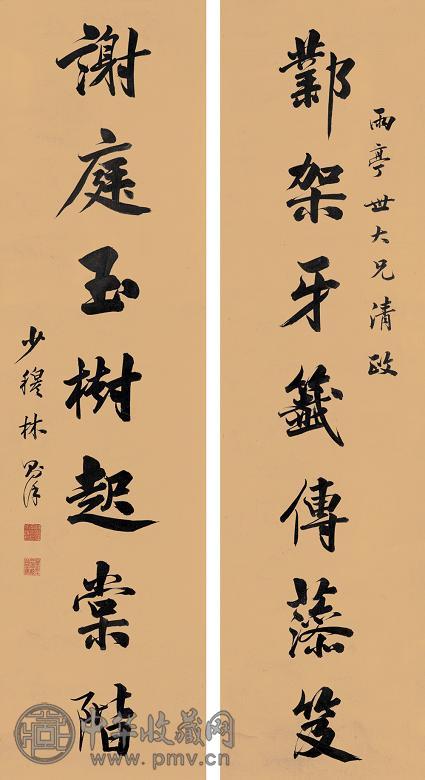 雨亭世大兄清政
鄴架牙籤傳笈
謝庭玉樹起棠階
少穆林則徐
中华收藏网
www.pmv.cn